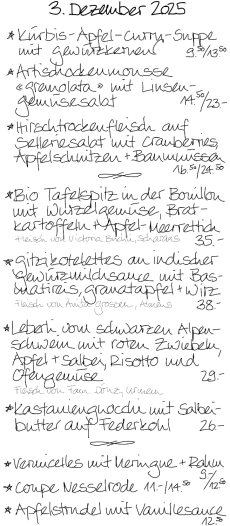 3. Dezember 2025
* Kürbis-Apfel-Curry-Suppe
mit Gewürzkernen 9.50/13.50
* Artischockenmousse
«granolata» mit Linsen-
gemüsesalat 14.50/23.-
* Hirschtrockenfleisch auf
Selleriesalat mit Cranberries,
Apfelschnitzen + Baumnüssen
16.50/24.50
* Bio Tafelspitz in der Bouillon
mit Wurzelgemüse, Brat-
kartoffeln + Apfel-Meerrettich
Fleisch von Victoria 35.-
* Gitzikotelettes an indischer
Gewürzmilchsauce mit Bas-
matireis, Granatapfel + Wirz
Fleisch von 38.-
* Leberli vom schwarzen Alpen-
schwein mit roten Zwiebeln,
Apfel + Salbei, Risotto und
Ofengemüse 29.-
Fleisch von Fam.
* Kastaniengnocchi mit Salbei-
butter auf Federkohl 26.-
* Vermicelles mit Meringue + Rahm
9.-/12.50
* Coupe Nesselrode 11.-/14.50
* Apfelstrudel mit Vanillesauce
12.50